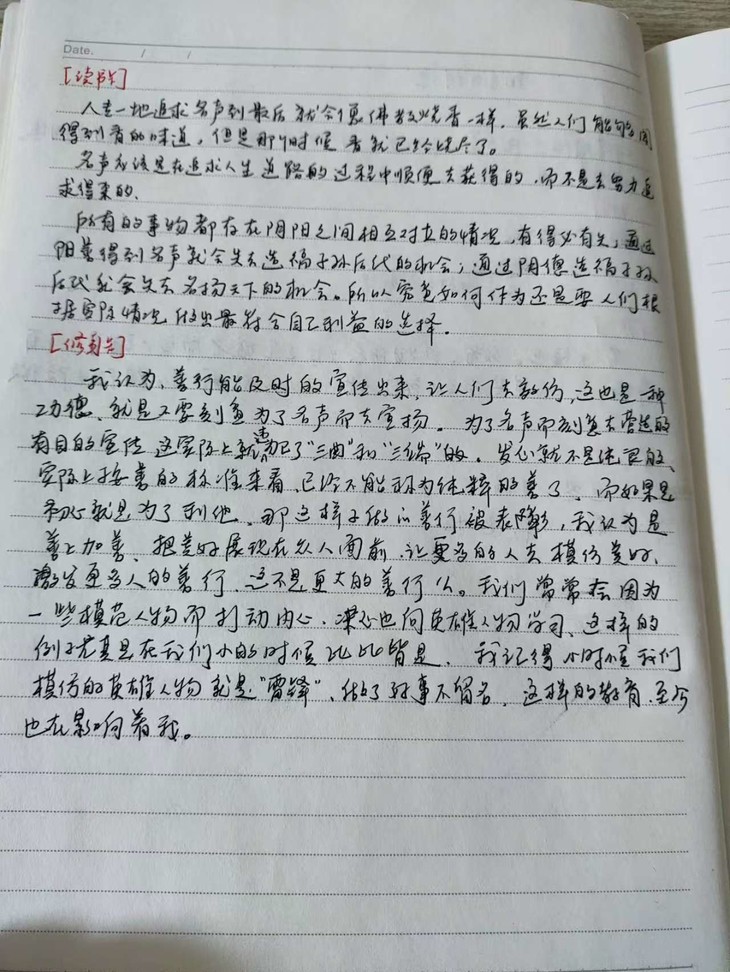 Date. / /
[读书]
人去一地追求名声到最后就会像佛教烧香一样,虽然人们能够闻
得到香的味道,但是那个时候香就已经烧尽了。
名声应该是在追求人生道路的过程中顺便去获得的,而不是去努力追
求得来的.
所有的事物都存在阴阳之间相互对立的情况,有得必有失,通过
阳善得到名声就会失去造福子孙后代的机会;通过阴德造福子孙
后代就会失去名扬天下的机会。所以究竟如何作为还是要人们根
据实际情况做出最符合自己利益的选择.
我认为,善行能及时的宣传出来,让人们去效仿,这也是一种
功德,就是不要刻意为了名声而去宣扬。为了名声而刻意去营造的
有目的宣传,这实际上就违犯了"三曲"和"三端"的,发心就不是纯良的、
实际上按善的标准来看,已经不能称为纯粹的善了,而如果是
初心就是为了利他,那这样子做的善行被表彰,我认为是
善上加善,把美好展现在众人面前,让更多的人去模仿美好,
激发更多人的善行,这不是更大的善行么。我们常常会因为
一些模范人物而打动内心,决心也向英雄人物学习,这样的
例子尤其是在我们小的时候比比皆是,我记得小时候我们
模仿的英雄人物就是"雷锋",做了好事不留名,这样的教育,至今
也在影响着我。